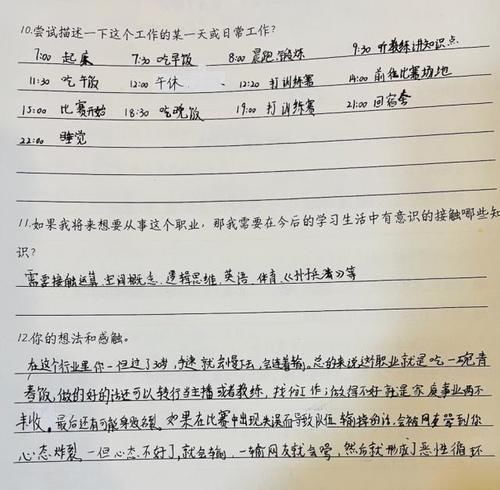 10.尝试描述一下这个工作的某一天或日常工作?
7:00 起床 7:30 吃早饭 8:00 晨跑 锻炼 9:30 听教练讲知识点
11:30 吃午饭 12:00 午休 12:20 打训练赛 14:00 前往比赛场地
15:00 比赛开始 18:30 吃晚饭 19:00 打训练赛 21:00 回宿舍
22:00 睡觉
11.如果我将来想要从事这个职业，那我需要在今后的学习生活中有意识的接触哪些知
识?
需要接触运算 空间概念 逻辑思维 英语 体育《孙子兵法》等
12.你的想法和感触。
在这个行业里你一但过了 手速就会慢下去,会连着输。总的来说这个职业就是吃一碗青
春饭,做的好的话还可以转行当主播或者教练,找份工作;做得不好就是家庭事业两不
丰收。最后还有可能身败名裂。如果在比赛中出现失误而导致队伍输掉的话,会被网友骂到你
心态炸裂,一但心态不好了,就会输,一输网友就会骂,然后就形成了恶性循环